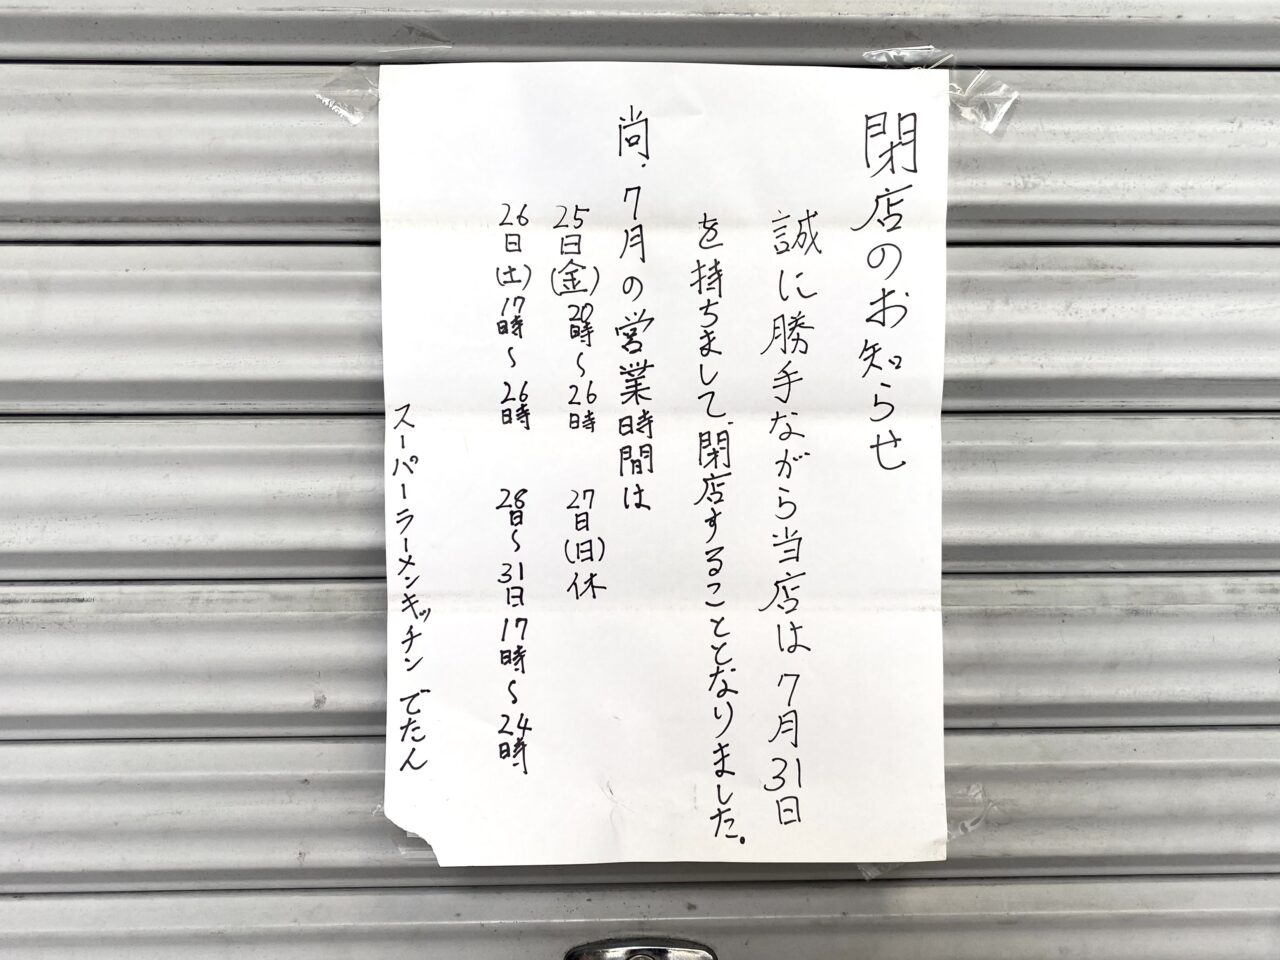 閉店のお知らせ
誠に勝手ながら当店は7月31日
を持ちまして、閉店することとなりました.
尚.7月の営業時間は
25日(金)20時〜26時 27日(日)休
26日(土)17時〜26時 28日〜31日17時〜24時
スーパーラーメンキッチンでたん